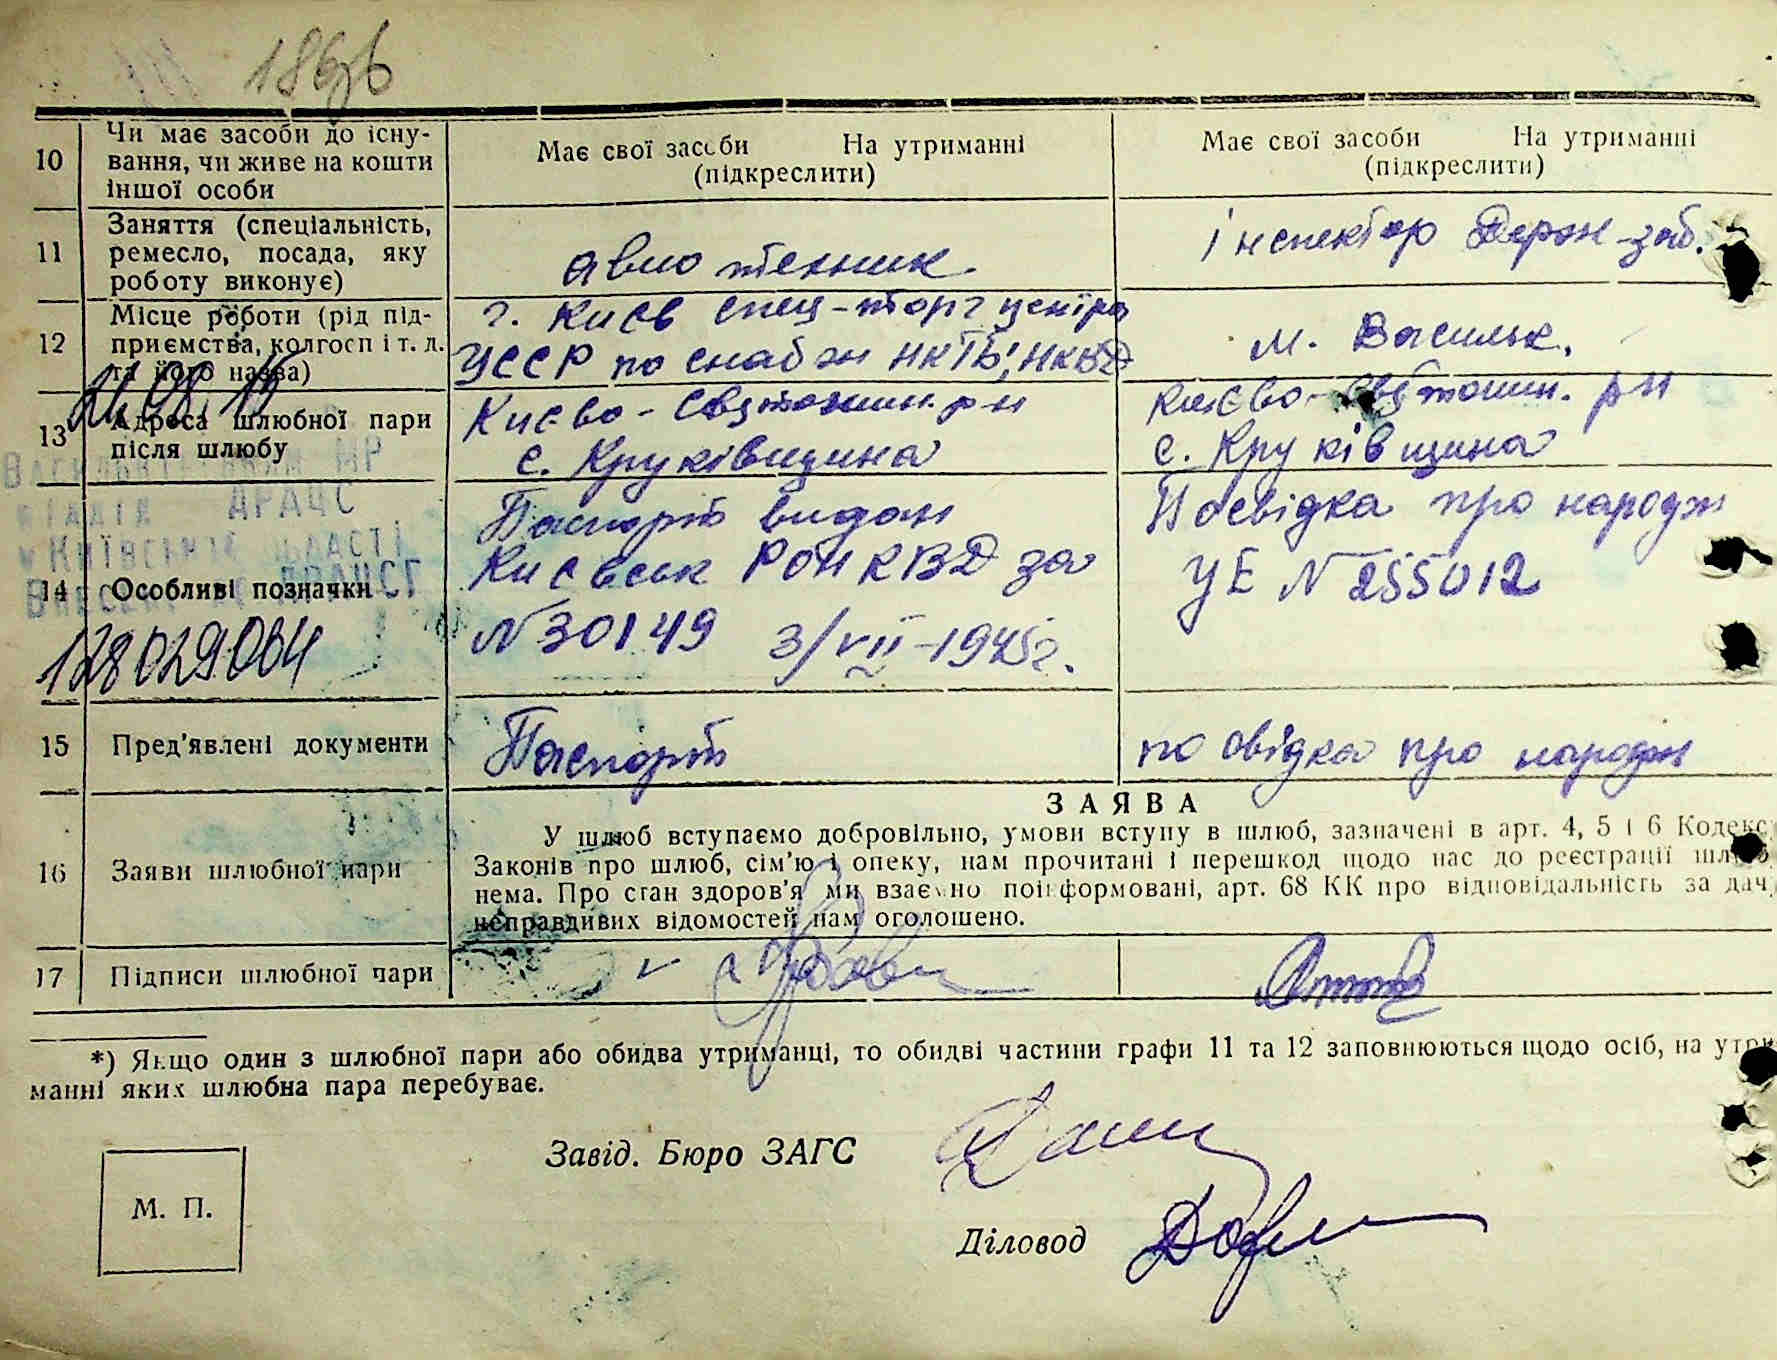 10 Чи має засоби до існу-
вання, чи живе на кошти
іншої особи
Має свої засоби На утриманні
(підкреслити)
Має свої засоби На утриманні
(підкреслити)
11 Заняття (спеціальність,
ремесло, посада, яку
роботу виконує)
авто технік
інспектор Держ-заб.
12 Місце роботи (рід під-
приємства, колгосп і т. д.
та його назва)
г. Києв спец-торг центра
УССР по снабж НКГБ, НКВД
м. Васильк.
13 Адреса шлюбної пари
після шлюбу
Києво-Святошин. р-н
с. Круківщина
Києво-Святошин. р-н
с. Круківщина
ДРАЦС
14 Особливі позначки
128029064
Паспорт видан
Києвськ РОНКВД за
N 30149 3/VII-1945г.
Посвідка про народж
УЕ N 255012
15 Пред'явлені документи
Паспорт
посвідка про народж
16 Заяви шлюбної пари
ЗАЯВА
У шлюб вступаємо добровільно, умови вступу в шлюб, зазначені в арт. 4, 5 і 6 Кодексу
Законів про шлюб, сім'ю і опеку, нам прочитані і перешкод щодо нас до реєстрації шлюб
нема. Про стан здоров'я ми взаємно поінформовані, арт. 68 КК про відповідальність за дач
неправдивих відомостей нам оголошено.
17 Підписи шлюбної пари
*) Якщо один з шлюбної пари або обидва утриманці, то обидві частини графи 11 та 12 заповнюються щодо осіб, на утри
манні яких шлюбна пара перебуває.
Завід. Бюро ЗАГС
М. П.
Діловод